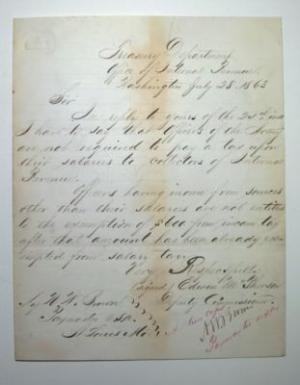 Treasury Department
Office of Internal Revenue
Washington July 28. 1863
Sir
In reply to yours of the
I have to say that officers of the Army
are not required to pay a tax upon
their salaries to Collectors of Internal
Revenue.
Officers having income from sources
other than their salaries are not entitled
to the exemption of $600 from income tax
after that amount has been already ex-
empted from salary tax.
Very Respectfully
Signed Edwin
Deputy Commissioner
Maj
Paymaster USA
St Louis Mo
A true copy
Paymaster USA